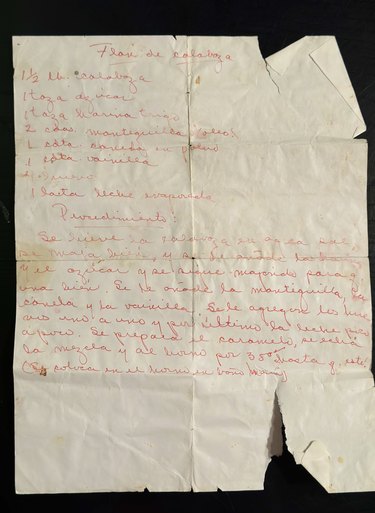 Flan de calabaza
1 1/2 lb. calabaza
1 taza azucar
1 taza harina trigo
2 cdas. mantequilla
1 cdta. canela en polvo
1 cdta vainilla
huevos
1 lata leche evaporada
Procedimiento:
Se hierve la calabaza en agua sal,
se maja bien, y se le añade la harina
y el azúcar y se sigue majando para q.
una bien. Se le añade la mantequilla, la
canela y la vainilla. Se le agregan los hue
vos uno a uno y por último la leche poco
a poco. Se prepara el caramelo, se echa
la mezcla y al horno por 350° hasta q. esté
(Se coloca en el horno en baño María)